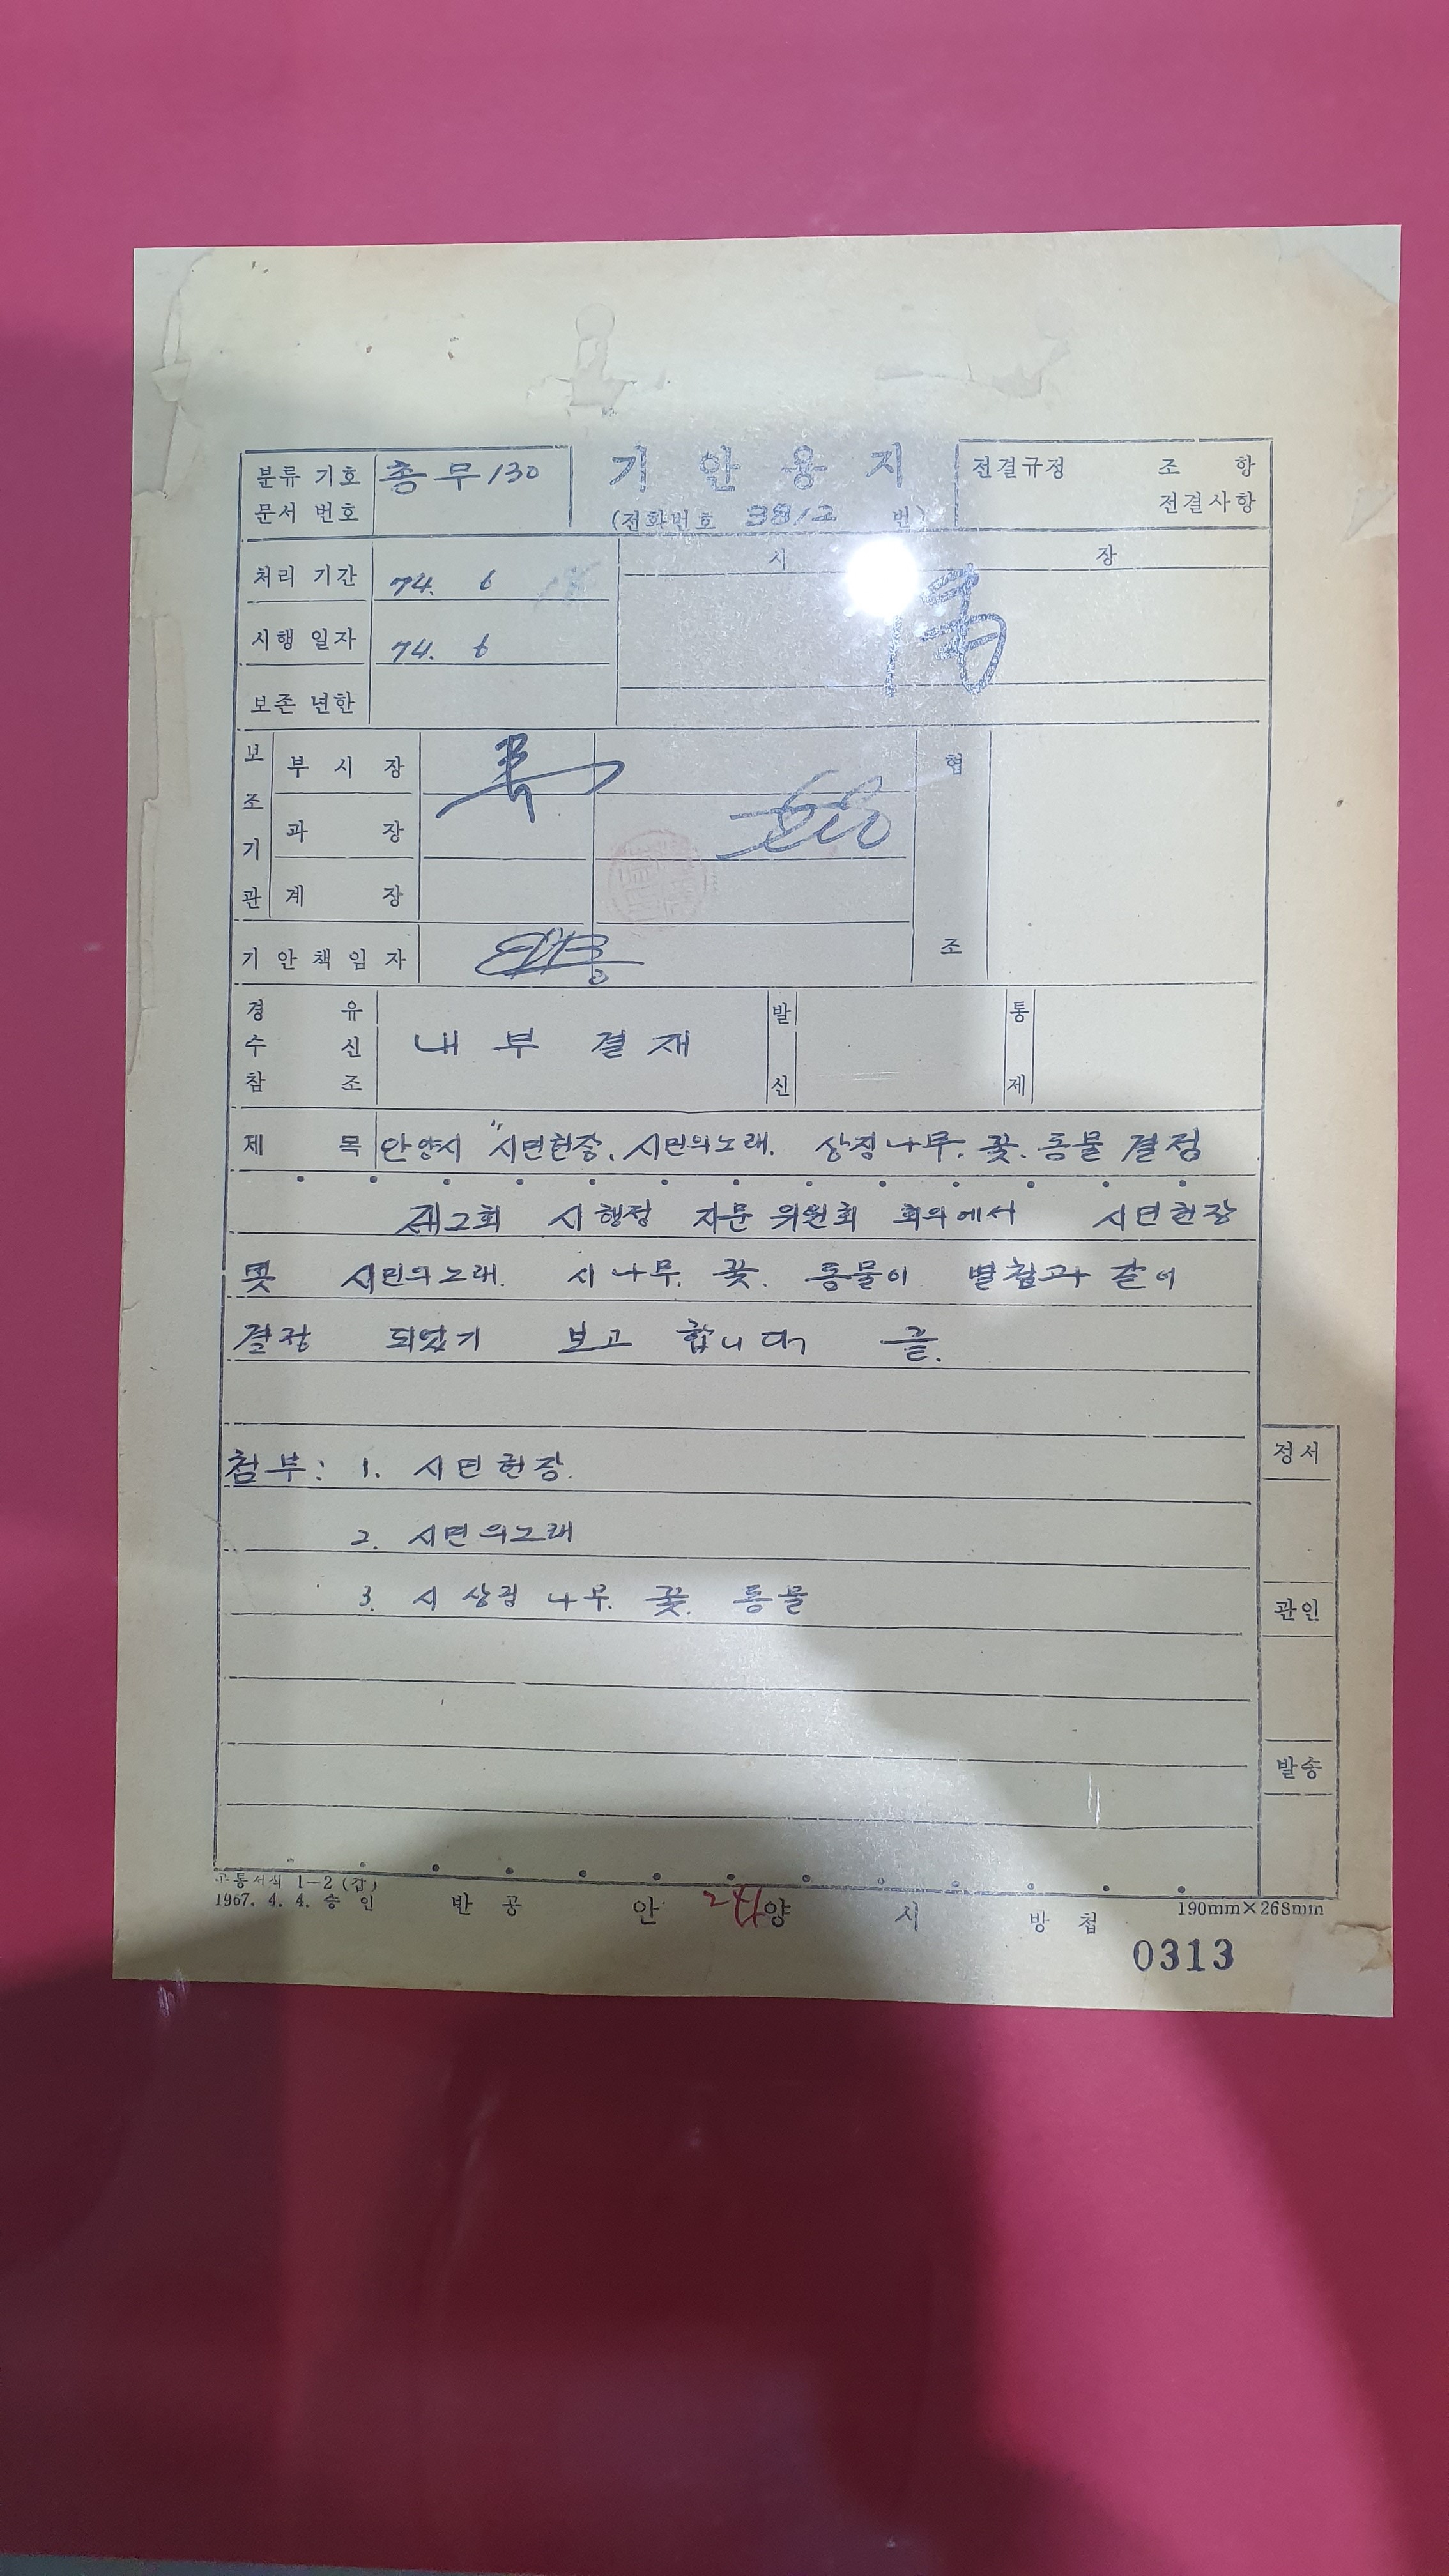 분류 기호 총무130
문서 번호
기 안 용 지
(전화번호 3812 번)
전결규정 조 항
전결사항
처리 기간 74. 6
시행 일자 74. 6
보존 년한
시 장
보조기관
부 시 장
과 장
계 장
기 안 책 임 자
협 조
경 유
수 신
참 조
내 부 결 재
발 신
통 제
제 목 안양시 "시민헌장. 시민의노래. 상징나무. 꽃. 동물 결정
제2회 시행정 자문 위원회 회의에서 시민헌장
및 시민의노래. 시나무. 꽃. 동물이 별첨과 같이
결정 되었기 보고 합니다 끝.
첨부: 1. 시민헌장.
2. 시민의노래
3. 시 상징 나무. 꽃. 동물
정서
관인
발송
공통서식 1-2 (갑)
1967. 4. 4. 승 인
반 공 안 양 시 방 첩
190mm×268mm
0313